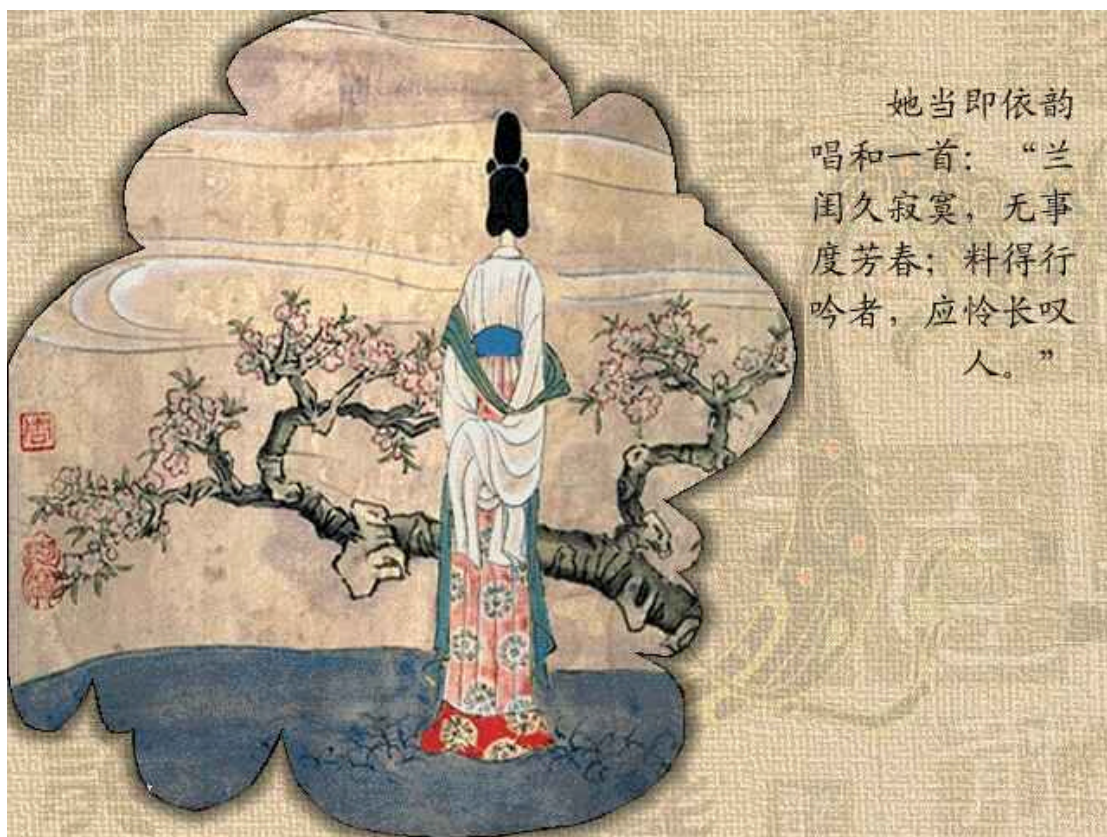 她当即依韵
唱和一首：“兰
闺久寂寞，无事
度芳春；料得行
吟者，应怜长叹
人。”